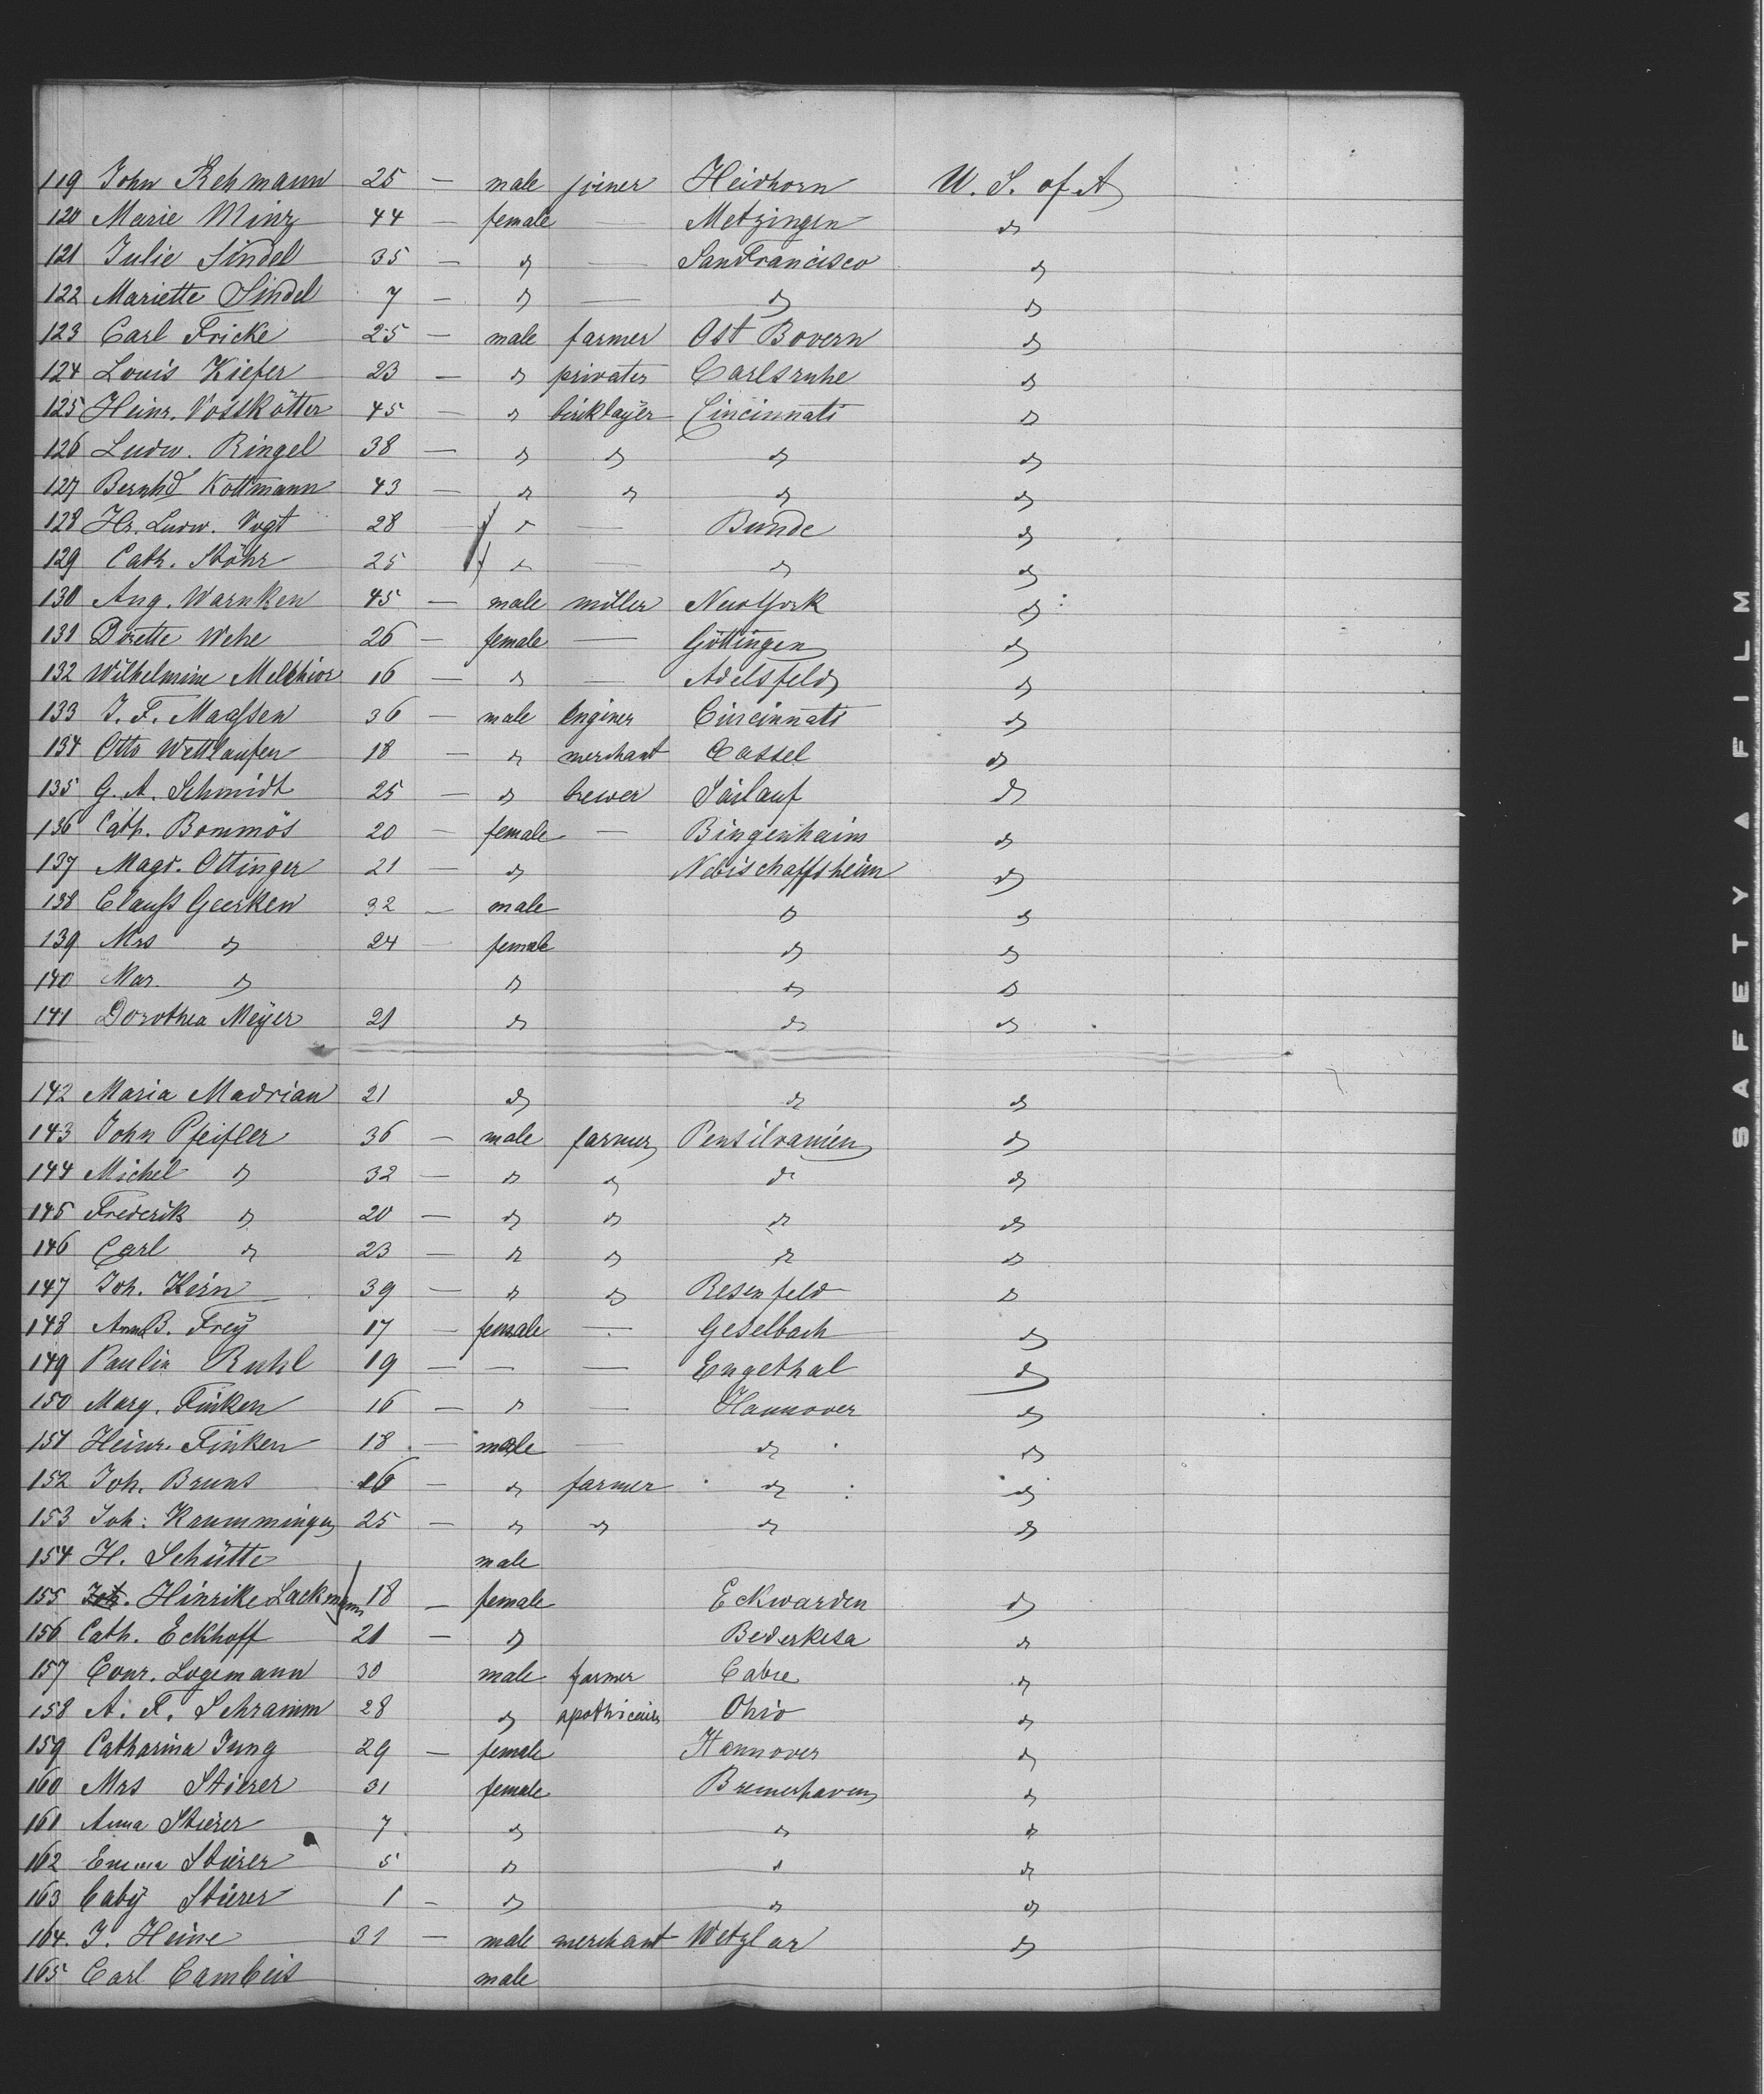 119 John Rehmann 25 — male joiner Heidhorn U. S. of A
120 Marie Minz 44 — female — Metzingen do
121 Julie Sindel 35 — do — SanFrancisco do
122 Mariette Sindel 7 — do — do do
123 Carl Fricke 25 — male farmer Ost Bovern do
124 Louis Kiefer 23 — do privater Carlsruhe do
125 Heinr. Vosskötter 45 — do briklayer Cincinnati do
126 Ludw. Ringel 38 — do do do do
127 Bernhd Kottmann 43 — do do do do
128 Hr. Ludw. Vogt 28 do — Bunde do
129 Cath. Stöhr 25 do — do do
130 Aug. Warnken 45 — male miller NewYork do
131 Dorette Wehe 26 — female — Göttingen do
132 Wilhelmine Melchior 16 — do — Adelsfeld do
133 J. F. Maassen 36 — male Enginer Cincinnati do
134 Otto Wettlaufer 18 — do merchant Cassel do
135 G. A. Schmidt 25 — do brewer Sailauf do
136 Cath. Bommös 20 — female — Bingenhaim do
137 Magd. Ottinger 21 — do Nebischaffsheim do
138 Clauss Geerken 32 — male do do
139 Mrs do 24 — female do do
140 Mar. do do do do
141 Dorothea Meÿer 21 do do do
142 Maria Madrian 21 do do do
143 John Pfeifler 36 — male farmer Pensilvanien do
144 Michel do 32 — do do do do
145 Frederik do 20 — do do do do
146 Carl do 23 — do do do do
147 Joh. Kern 39 — do do Resenfeld do
148 AnnaB. Freÿ 17 — female — Geselbach do
149 Paulin Ruhl 19 — — — Engethal do
150 Marg. Finken 16 — do — Hannover do
151 Heinr. Finken 18 — male — do do
152 Joh. Bruns 16 — do farmer do do
153 Joh: 25 — do do do do
154 H. Schütte male
155 Hinrike Lackmann 18 — female Eckwarden do
156 Cath. Eckhoff 21 — do Bederkesa do
157 Conr. Logemann 30 male farmer Cabre do
158 A. F. Schramm 28 do Ohio do
159 Catharina Jung 29 — female Hannover do
160 Mrs Stierer 31 female Bremerhaven do
161 Anna Stierer 7 do do do
162 Emma Stierer 5 do do do
163 Gabÿ Stierer 1 — do do do
164. J. Heine 31 — male merchant Wetzlar do
165 Carl Cambeis male
SAFETY FILM